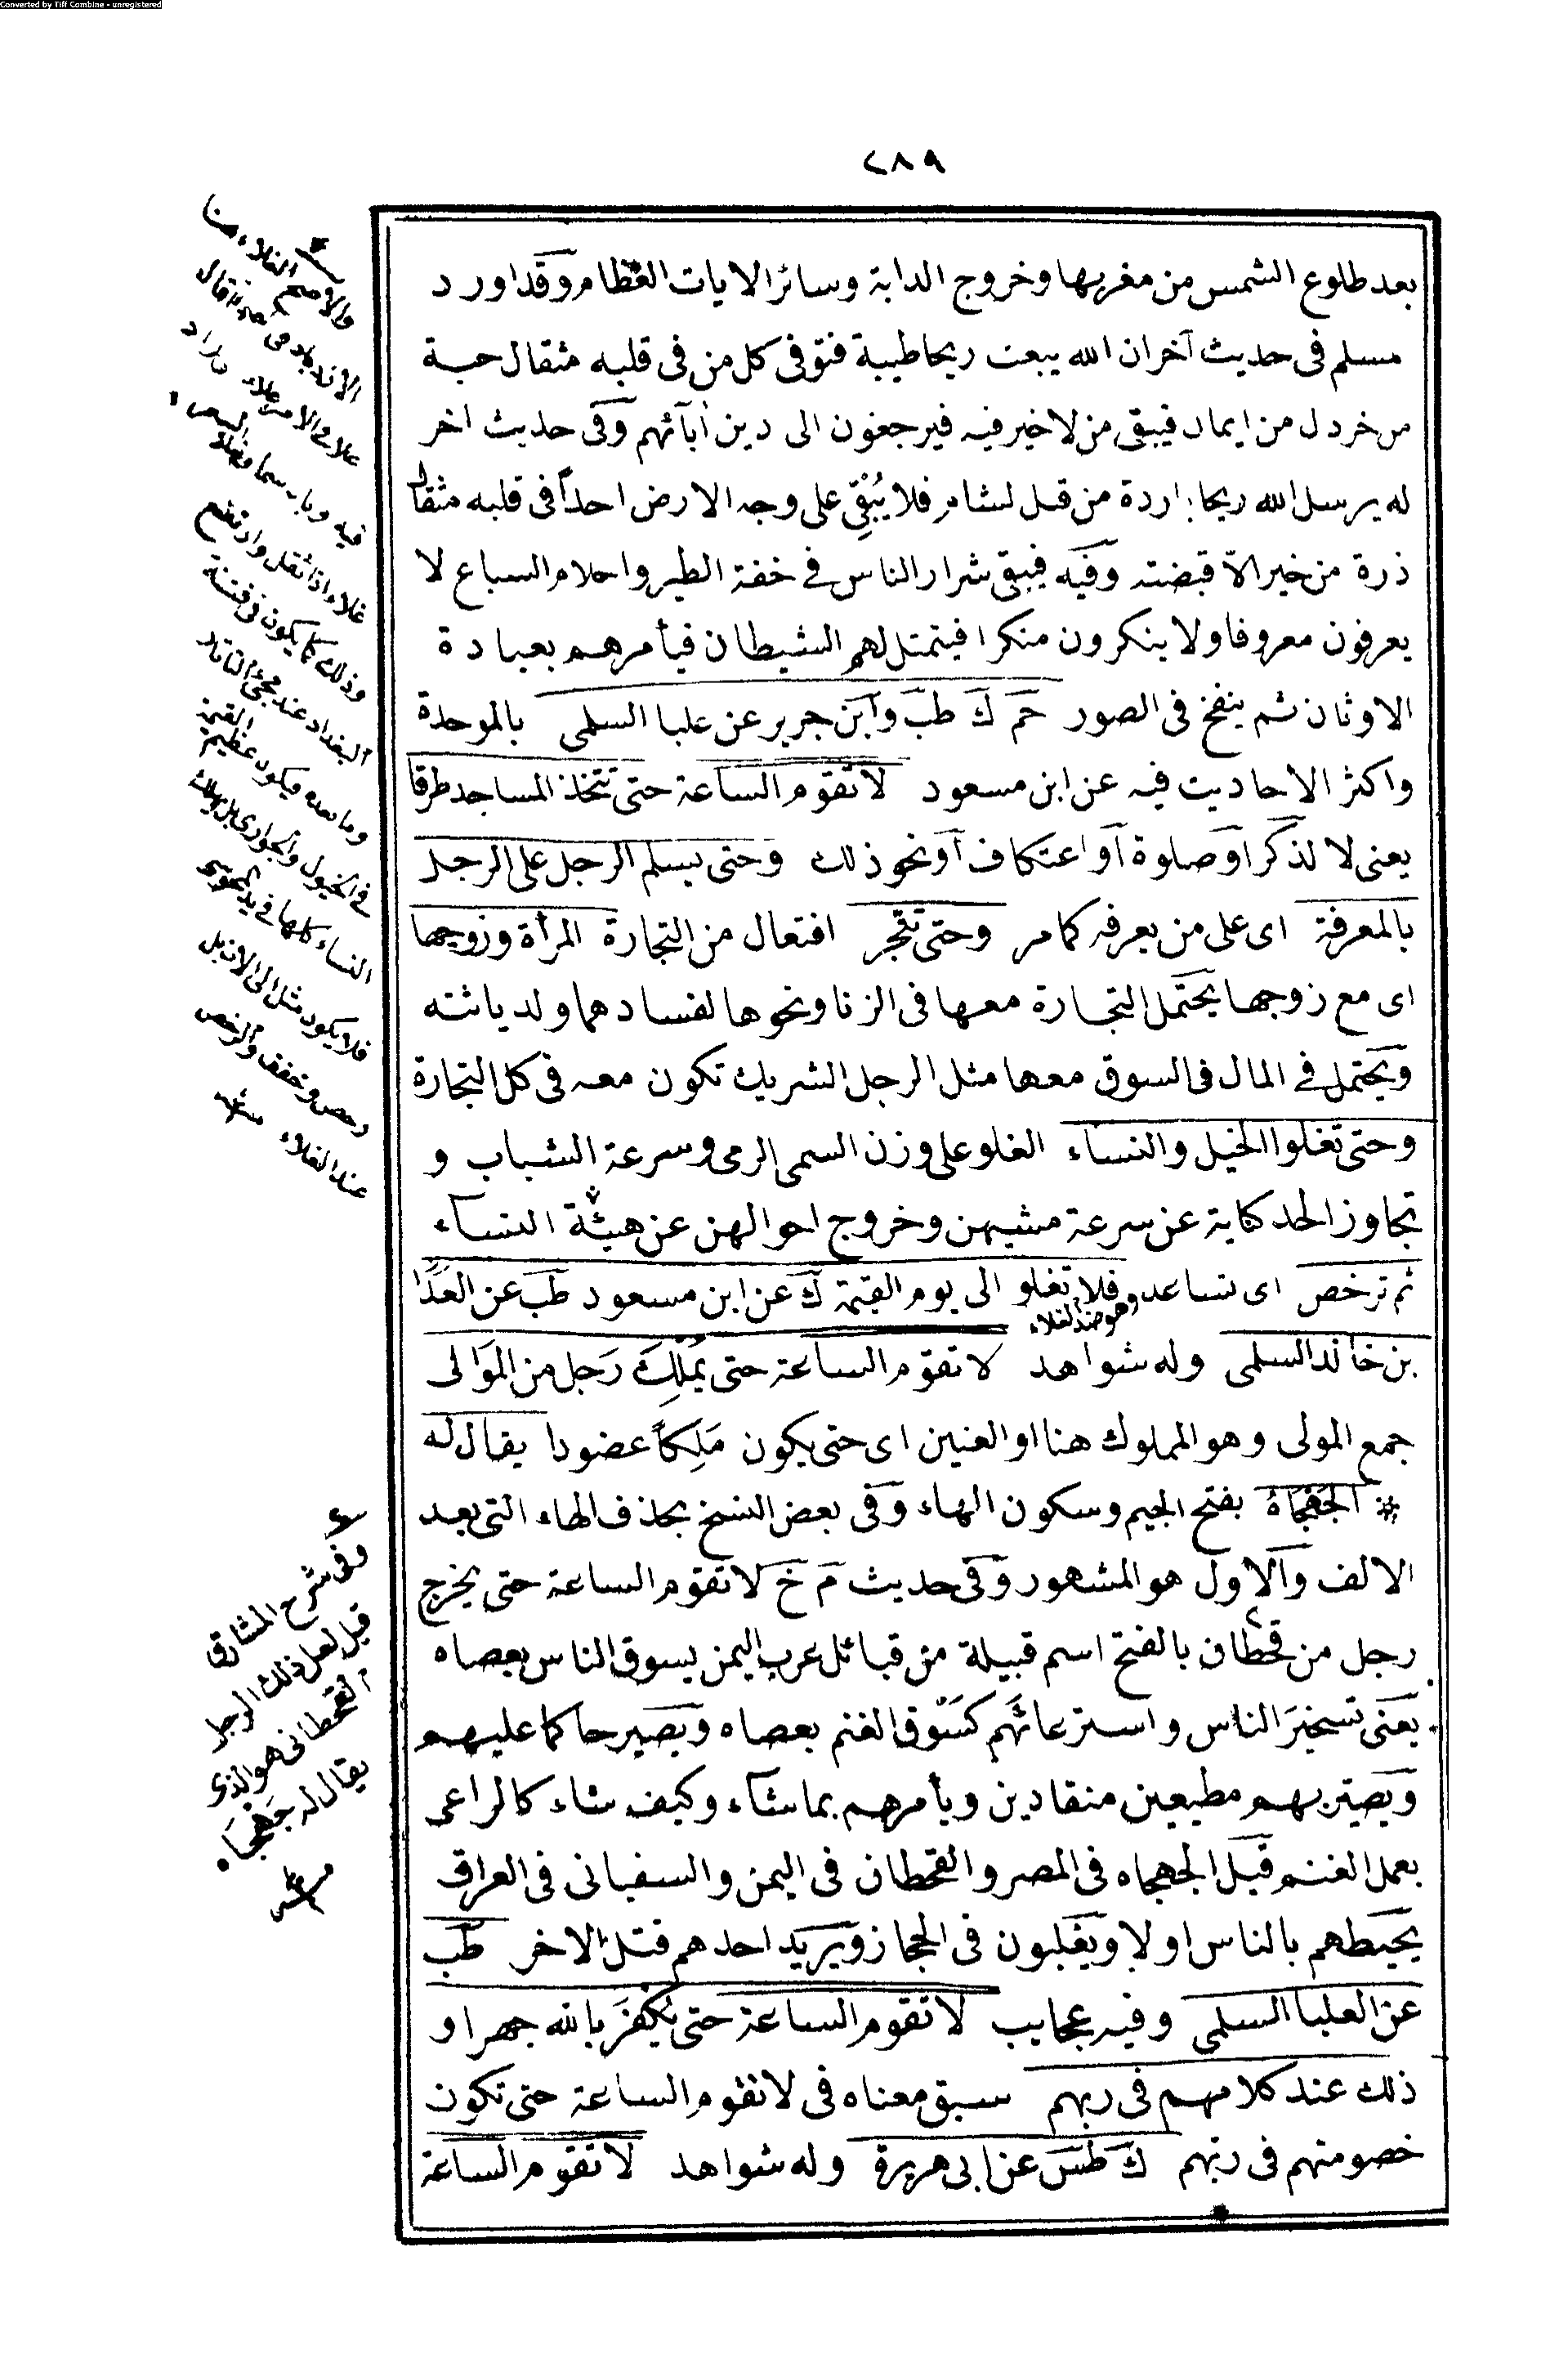 Converted by Tiff Combine - unregistered
٢٨٩
بعد طلوع الشمس من مغربها وخروج الدابة وسائر الايات العظام وقد اورد
مسلم فى حديث آخر ان الله يبعث ريحا طيبة فتوفى كل من فى قلبه مثقال حبة
من خردل من ايمان فيبقى من لا خير فيه فيرجعون الى دين اٰبآئهم وفى حديث اخر
له يرسل الله ريحا باردة من قبل لشام فلا يُبْقِى على وجه الارض احداً فى قلبه مثقال
ذرة من خير الاّ قبضته وفيه فيبقى شرار الناس فى خفة الطير واحلام السباع لا
يعرفون معروفا ولا ينكرون منكرا فيتمثل لهم الشيطان فيأمرهم بعبادة
الاوثان ثم ينفخ فى الصور حم ك طب وابن جرير عن علبا السلمى بالموحدة
واكثر الاحاديث فيه عن ابن مسعود لا تقوم الساعة حتى تتخذ المساجد طرقا
يعنى لا لذكر او صلوة او اعتكاف او نحو ذلك وحتى يسلم الرجل على الرجل
بالمعرفة اى على من يعرفه كما مر وحتى تتجر افتعال من التجارة المرأة وزوجها
اى مع زوجها يحتمل التجارة معها فى الزنا ونحوها لفسادهما ولدياثته
ويحتمل فى المال فى السوق معها مثل الرجل الشريك تكون معه فى كل التجارة
وحتى تغلوا الخيل والنساء الغلو على وزن السمى الرمى وسرعة الشباب و
تجاوز الحد كناية عن سرعة مشيهن وخروج احوالهن عن هيئة النساء
ثم ترخص اى تساعد وهو ضد لغلاء فلا تغلو الى يوم القيمة ك عن ابن مسعود طب عن العدا
بن خالد السلمى وله شواهد لا تقوم الساعة حتى يَمْلِكَ رَجل من المَوالى
جمع المولى وهو المملوك هنا او العنين اى حتى يكون مَلِكاً عضودا يقال له
الجَهْجَاهُ بفتح الجيم وسكون الهاء وفى بعض النسخ بحذف الهاء التى بعد
الالف والاول هو المشهور وفى حديث م خ لا تقوم الساعة حتى يخرج
رجل من قحطان بالفتح اسم قبيلة من قبائل عرب اليمن يسوق الناس بعصاه
يعنى تسخيرَ الناس واسترعائَهم كسَوْق الغنم بعصاه ويصير حاكما عليهم
ويصير بهم مطيعين منقادين ويأمرهم بما شاء وكيف شاء كالراعى
يعمل الغنم قبل الجهجاه فى المصر والقحطان فى اليمن والسفيانى فى العراق
يحيطهم بالناس اولا ويغلبون فى الحجاز ويريد احدهم قتل الاخر طب
عن العلبا السلمى وفيه عجايب لا تقوم الساعة حتى يُكفَرَ بالله جهرا و
ذلك عند كلامهم فى ربهم سبق معناه فى لا تقوم الساعة حتى تكون
خصومتهم فى ربهم ك طس عن ابى هريرة وله شواهد لا تقوم الساعة
غلاء اذا ثقل وارتفع
وذلك كما يكون فى فتنة
البغداد عند مجئ التاتار
وما بعده فيكون عظيم القيمة
فى الخيول والجوارى بل يهلك
فلا يكون مثل الى الان بل
رخص وخفف والرخص
عند الغلاء
وفى شرح المشارق
قيل لعل ذلك الرجل
القحطانى هو الذى
يقال له جَهْجَاه